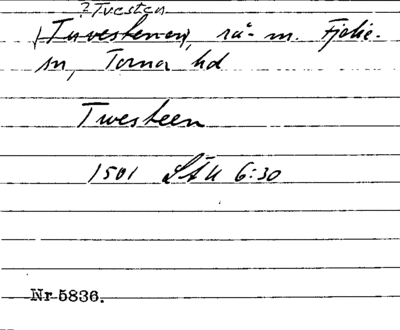 ? Tvesten
(Tuvestenen), rå- m. Fjelie
sn, Torna hd
Twesteen
1501 StU 6:30
Nr 5836.